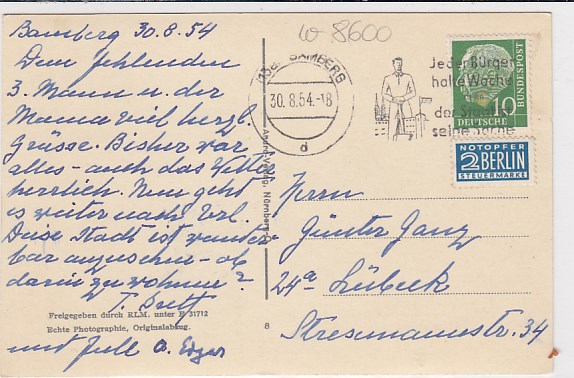 Bamberg 30.8.54
Dem fehlenden
3. Mann u. der
Mama viel herzl.
Grüsse. Bisher war
alles - auch das Wetter
herrlich. Nun geht
es weiter nach
Diese Stadt ist wunder-
bar anzusehen - ob
darin zu wohnen?
T.
und a.
Freigegeben durch RLM. unter F 31712
Echte Photographie, Originalabzug.
8
Verlag, Nürnberg
w 8600
BAMBERG
30.8.54.-18
d
Jeder Bürger
halte Wache
der Stadt
seine Sorge
10
DEUTSCHE
BUNDESPOST
NOTOPFER
2 BERLIN
STEUERMARKE
Herrn
Günter Ganz
24a Lübeck
Stresemannstr. 34